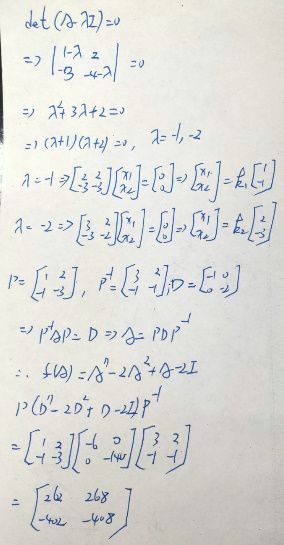 det(A λI)=0
=> |1-λ 2 -3 -4-λ| =0
=> λ²+3λ+2=0
=> (λ+1)(λ+2)=0, λ=-1,-2
λ=-1 => [2 2 -3 -3][x₁ x₂]=[0 0]=>[x₁ x₂]=k₁[1 -1]
λ=-2 => [3 2 -3 -2][x₁ x₂]=[0 0]=>[x₁ x₂]=k₂[2 -3]
P=[1 2 -1 -3], P⁻¹=[3 2 -1 -1], D=[-1 0 0 -2]
=> P⁻¹AP=D => A=PDP⁻¹
∴ f(A)=A⁷-2A²+A-2I
P(D⁷-2D²+D-2I)P⁻¹
=[1 2 -1 -3][-6 0 0 -140][3 2 -1 -1]
=[262 268 -402 -408]